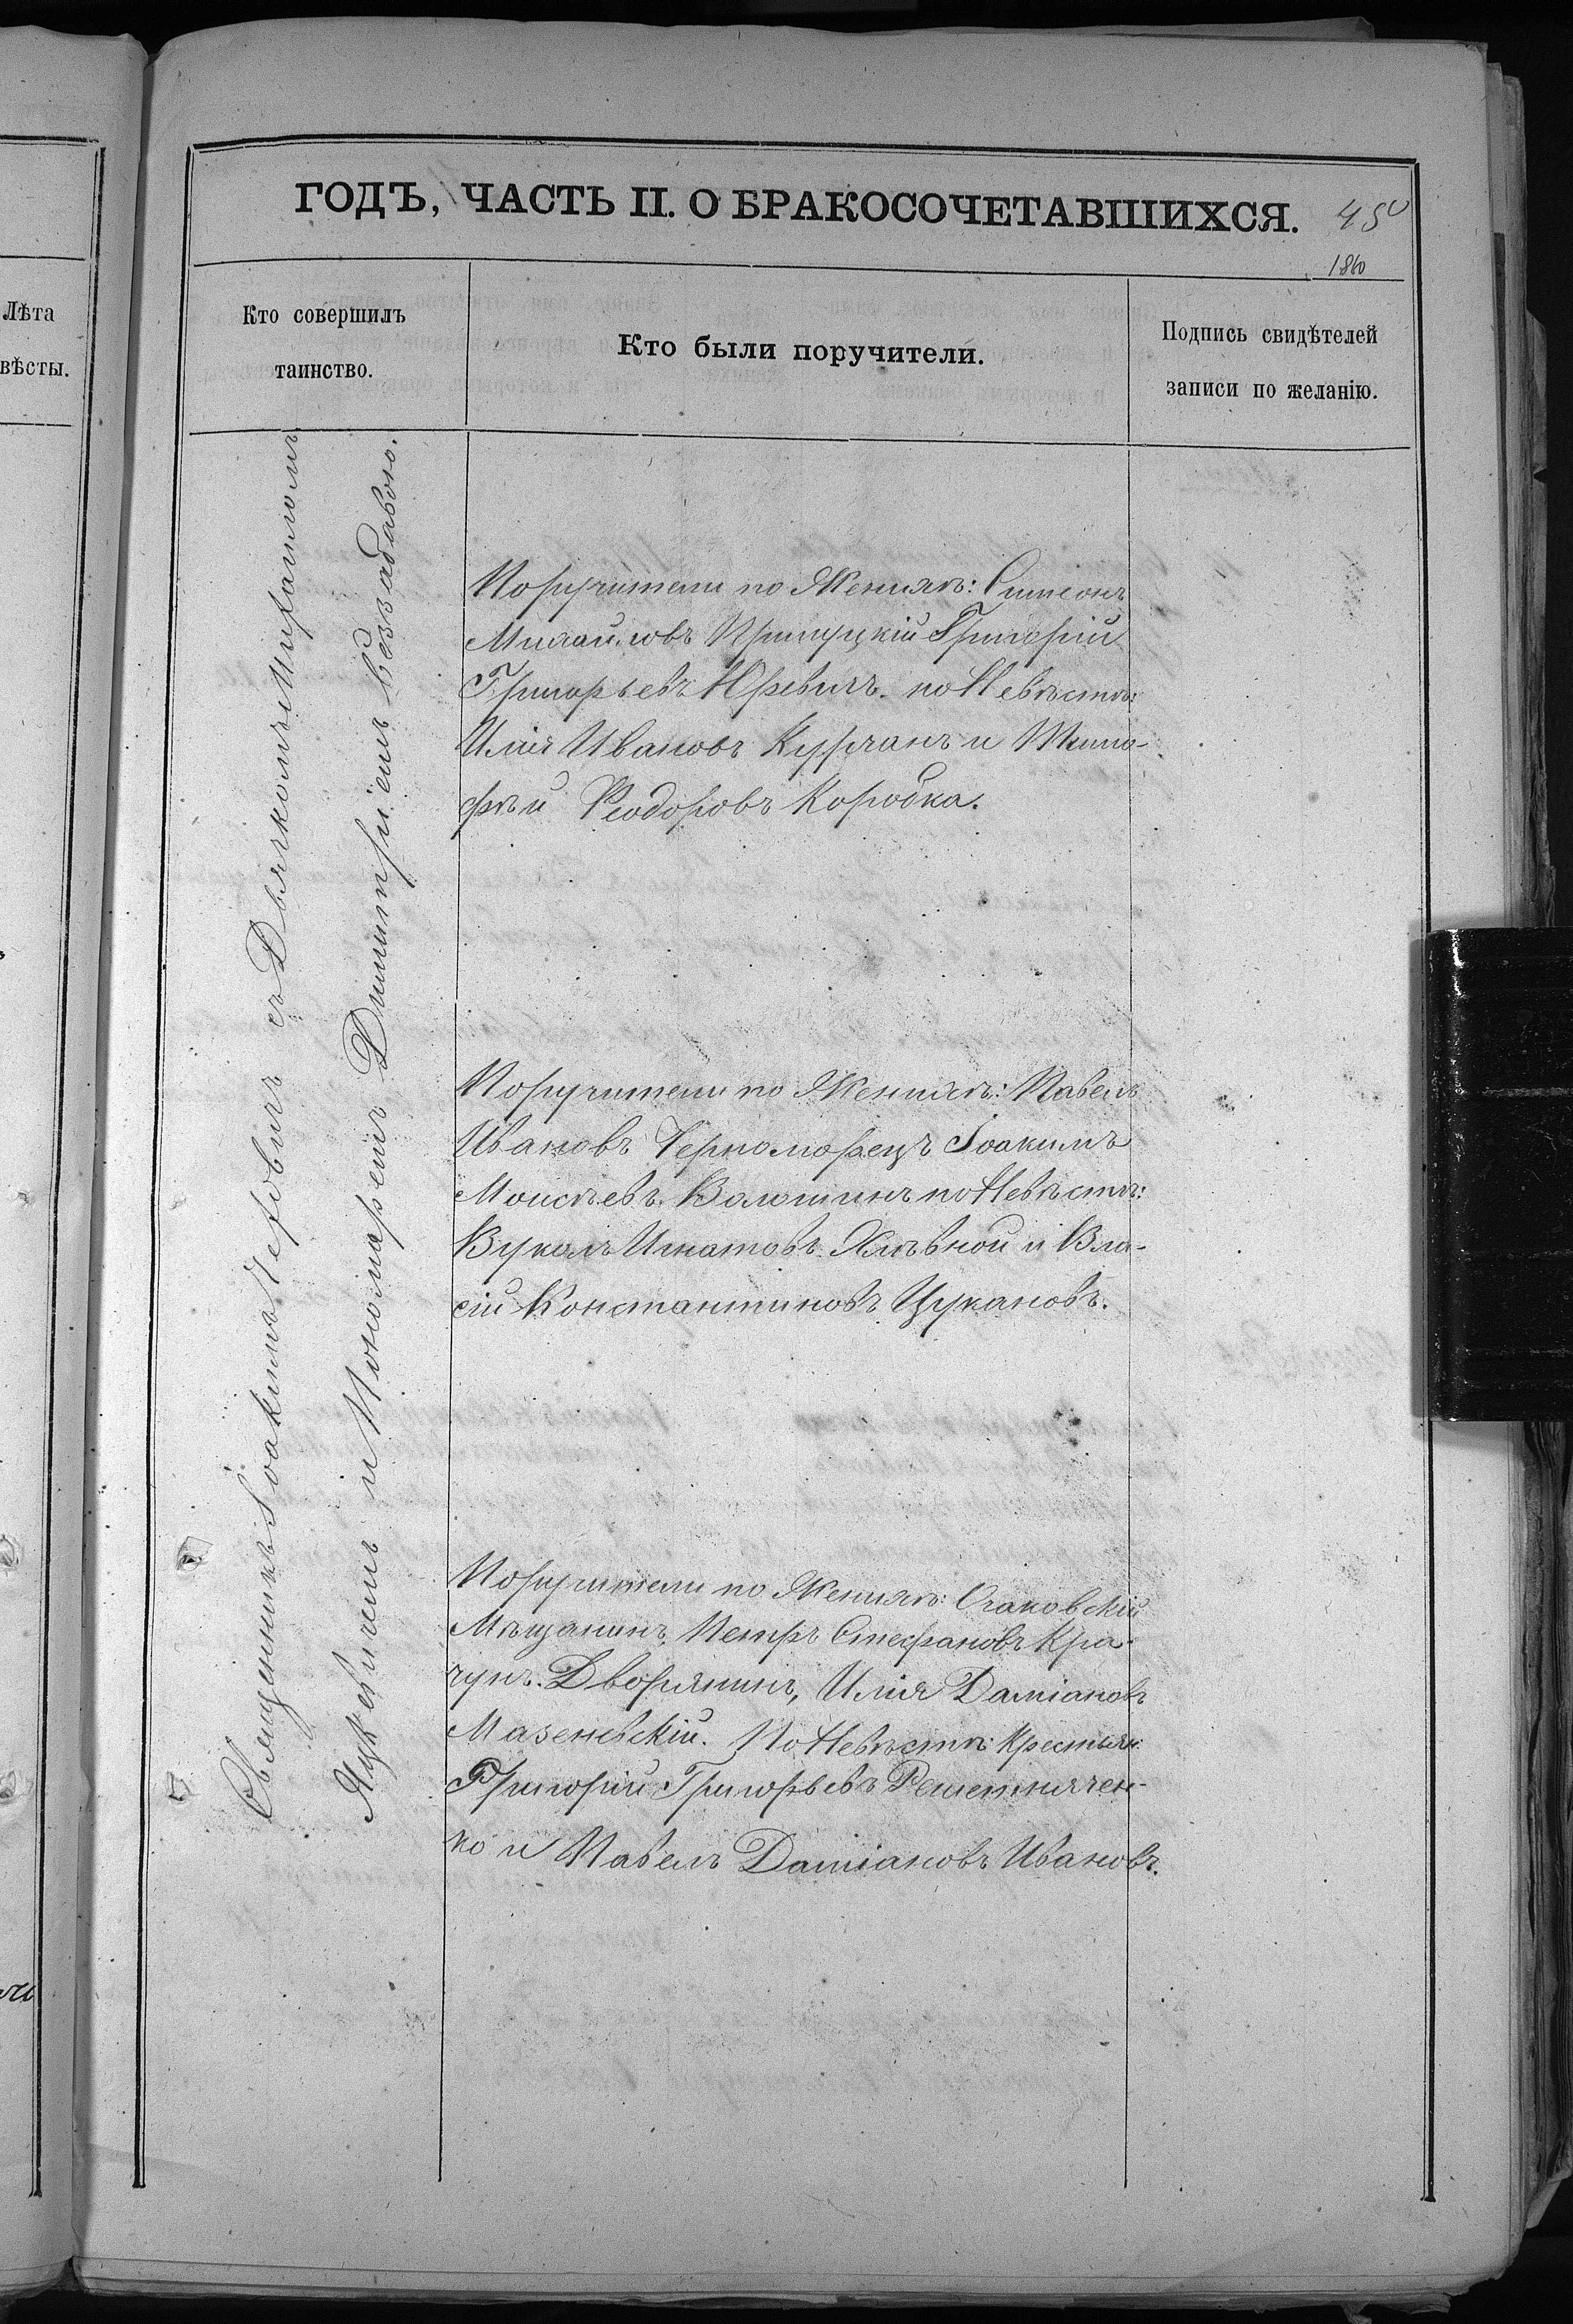 Лѣта
вѣсты.
ГОДЪ, ЧАСТЬ II. О БРАКОСОЧЕТАВШИХСЯ.
450
1860
Кто совершилъ
таинство.
Кто были поручители.
Подпись свидѣтелей
записи по желанію.
Священникъ Іоакимъ съ Дьячкомъ Михаиломъ
Яцкевичемъ и Пономаремъ Димитріемъ Беззабавою.
Поручители по Женихѣ: Симеонъ
Михайловъ Прилуцкій Григорій
Григорьевъ Юревичъ. по Невѣстѣ:
Илія Ивановъ Курчанъ и Тимо-
фѣй Феодоровъ Коробка.
Поручители по Женихѣ: Павелъ
Ивановъ Черноморецъ Іоакимъ
Моисѣевъ Волошинъ по Невѣстѣ:
Вуколъ Игнатовъ Хлѣвной и Вла-
сій Константиновъ Цукановъ.
Поручители по Женихѣ: Очаковскій
Мѣщанинъ, Петръ Стефановъ Кра-
чунъ. Дворянинъ, Илія Даміановъ
Мазеневскій. По Невѣстѣ: Крестьян:
Григорій Григорьевъ Решетнячен-
ко и Павелъ Даміановъ Ивановъ.